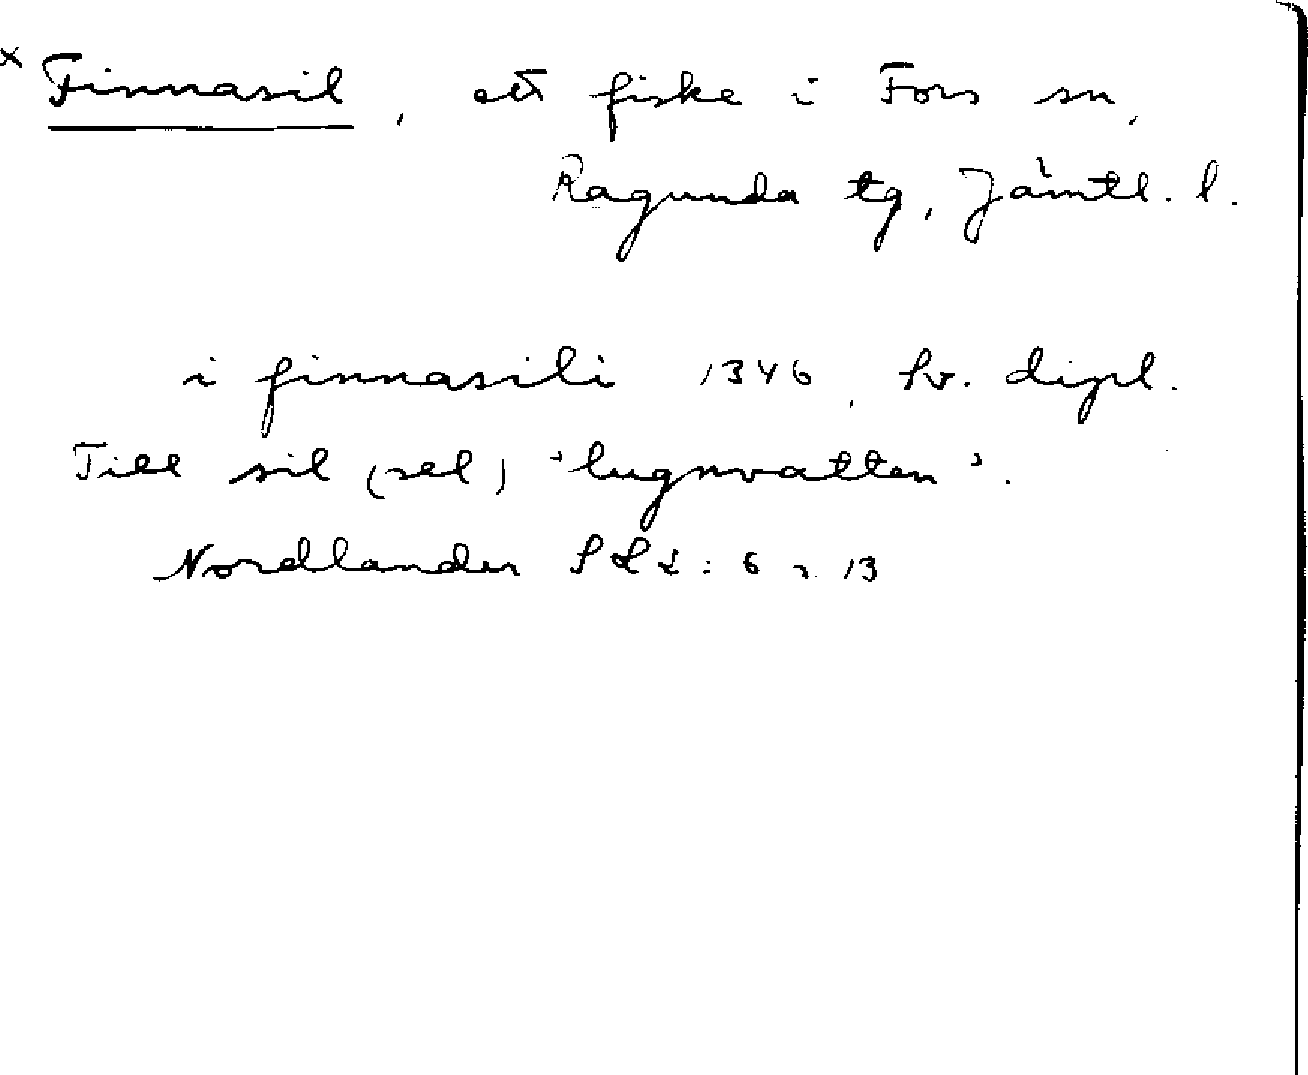 x Finnasil, ett fiske i Fors sn,
Ragunda tg, Jämtl. l.
i finnasili 1346, hr. dipl.
Till sil (sel) 'lugnvatten'.
Nordlander : 6 n. 13